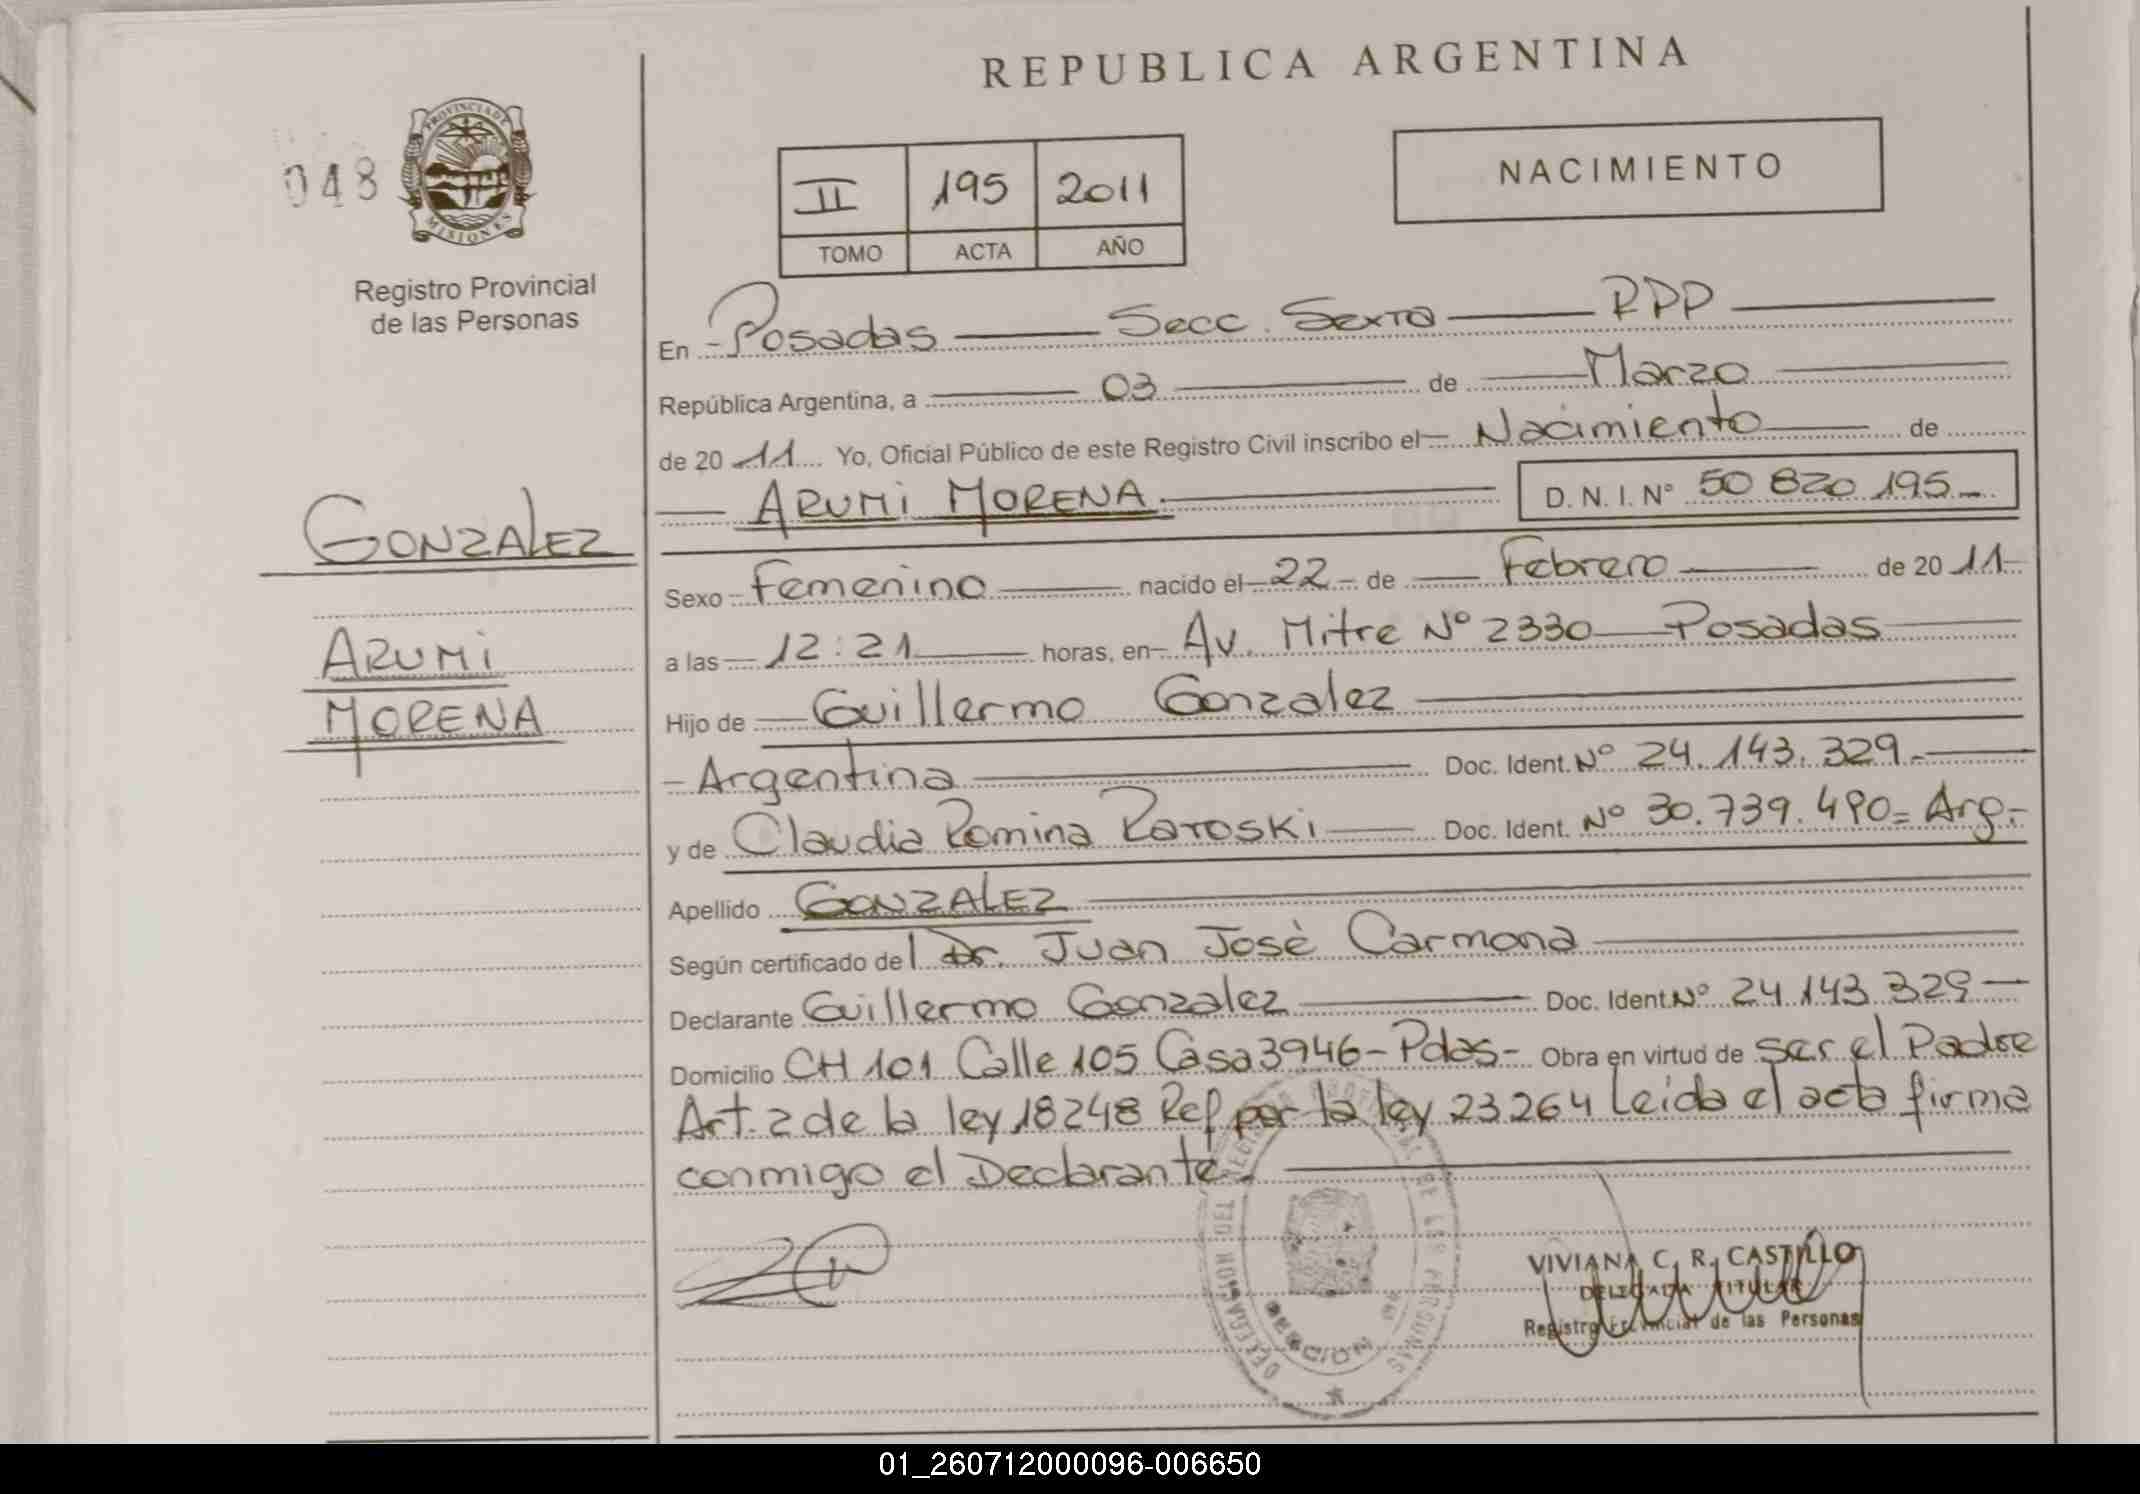 REPUBLICA ARGENTINA
NACIMIENTO
II 195 2011
TOMO ACTA AÑO
048
PROVINCIA DE MISIONES
Registro Provincial
de las Personas
GONZALEZ
ARUMI
MORENA
En Posadas Secc. Sexta RPP
República Argentina, a 03 de Marzo
de 2011 Yo, Oficial Público de este Registro Civil inscribo el Nacimiento de
ARUMI MORENA D.N.I. Nº 50 820 195
Sexo Femenino nacido el 22 de Febrero de 2011
a las 12:21 horas, en Av. Mitre Nº 2330 Posadas
Hijo de Guillermo Gonzalez
Argentina Doc. Ident. Nº 24.143.329.
y de Claudia Romina Ratoski Doc. Ident. Nº 30.739.490= Arg.
Apellido GONZALEZ
Según certificado del Dr. Juan José Carmona
Declarante Guillermo Gonzalez Doc. Ident. Nº 24 143 329
Domicilio CH 101 Calle 105 Casa 3946 - Pdas - Obra en virtud de ser el Padre
Art. 2 de la ley 18248 Ref por la ley 23264 Leída el acta firma
conmigo el Declarante.
VIVIANA C. R. CASTILLO
DELEGADA TITULAR
Registro Provincial de las Personas
DELEGACION DEL REGISTRO PROVINCIAL DE LAS PERSONAS
SECCION
01_260712000096-006650